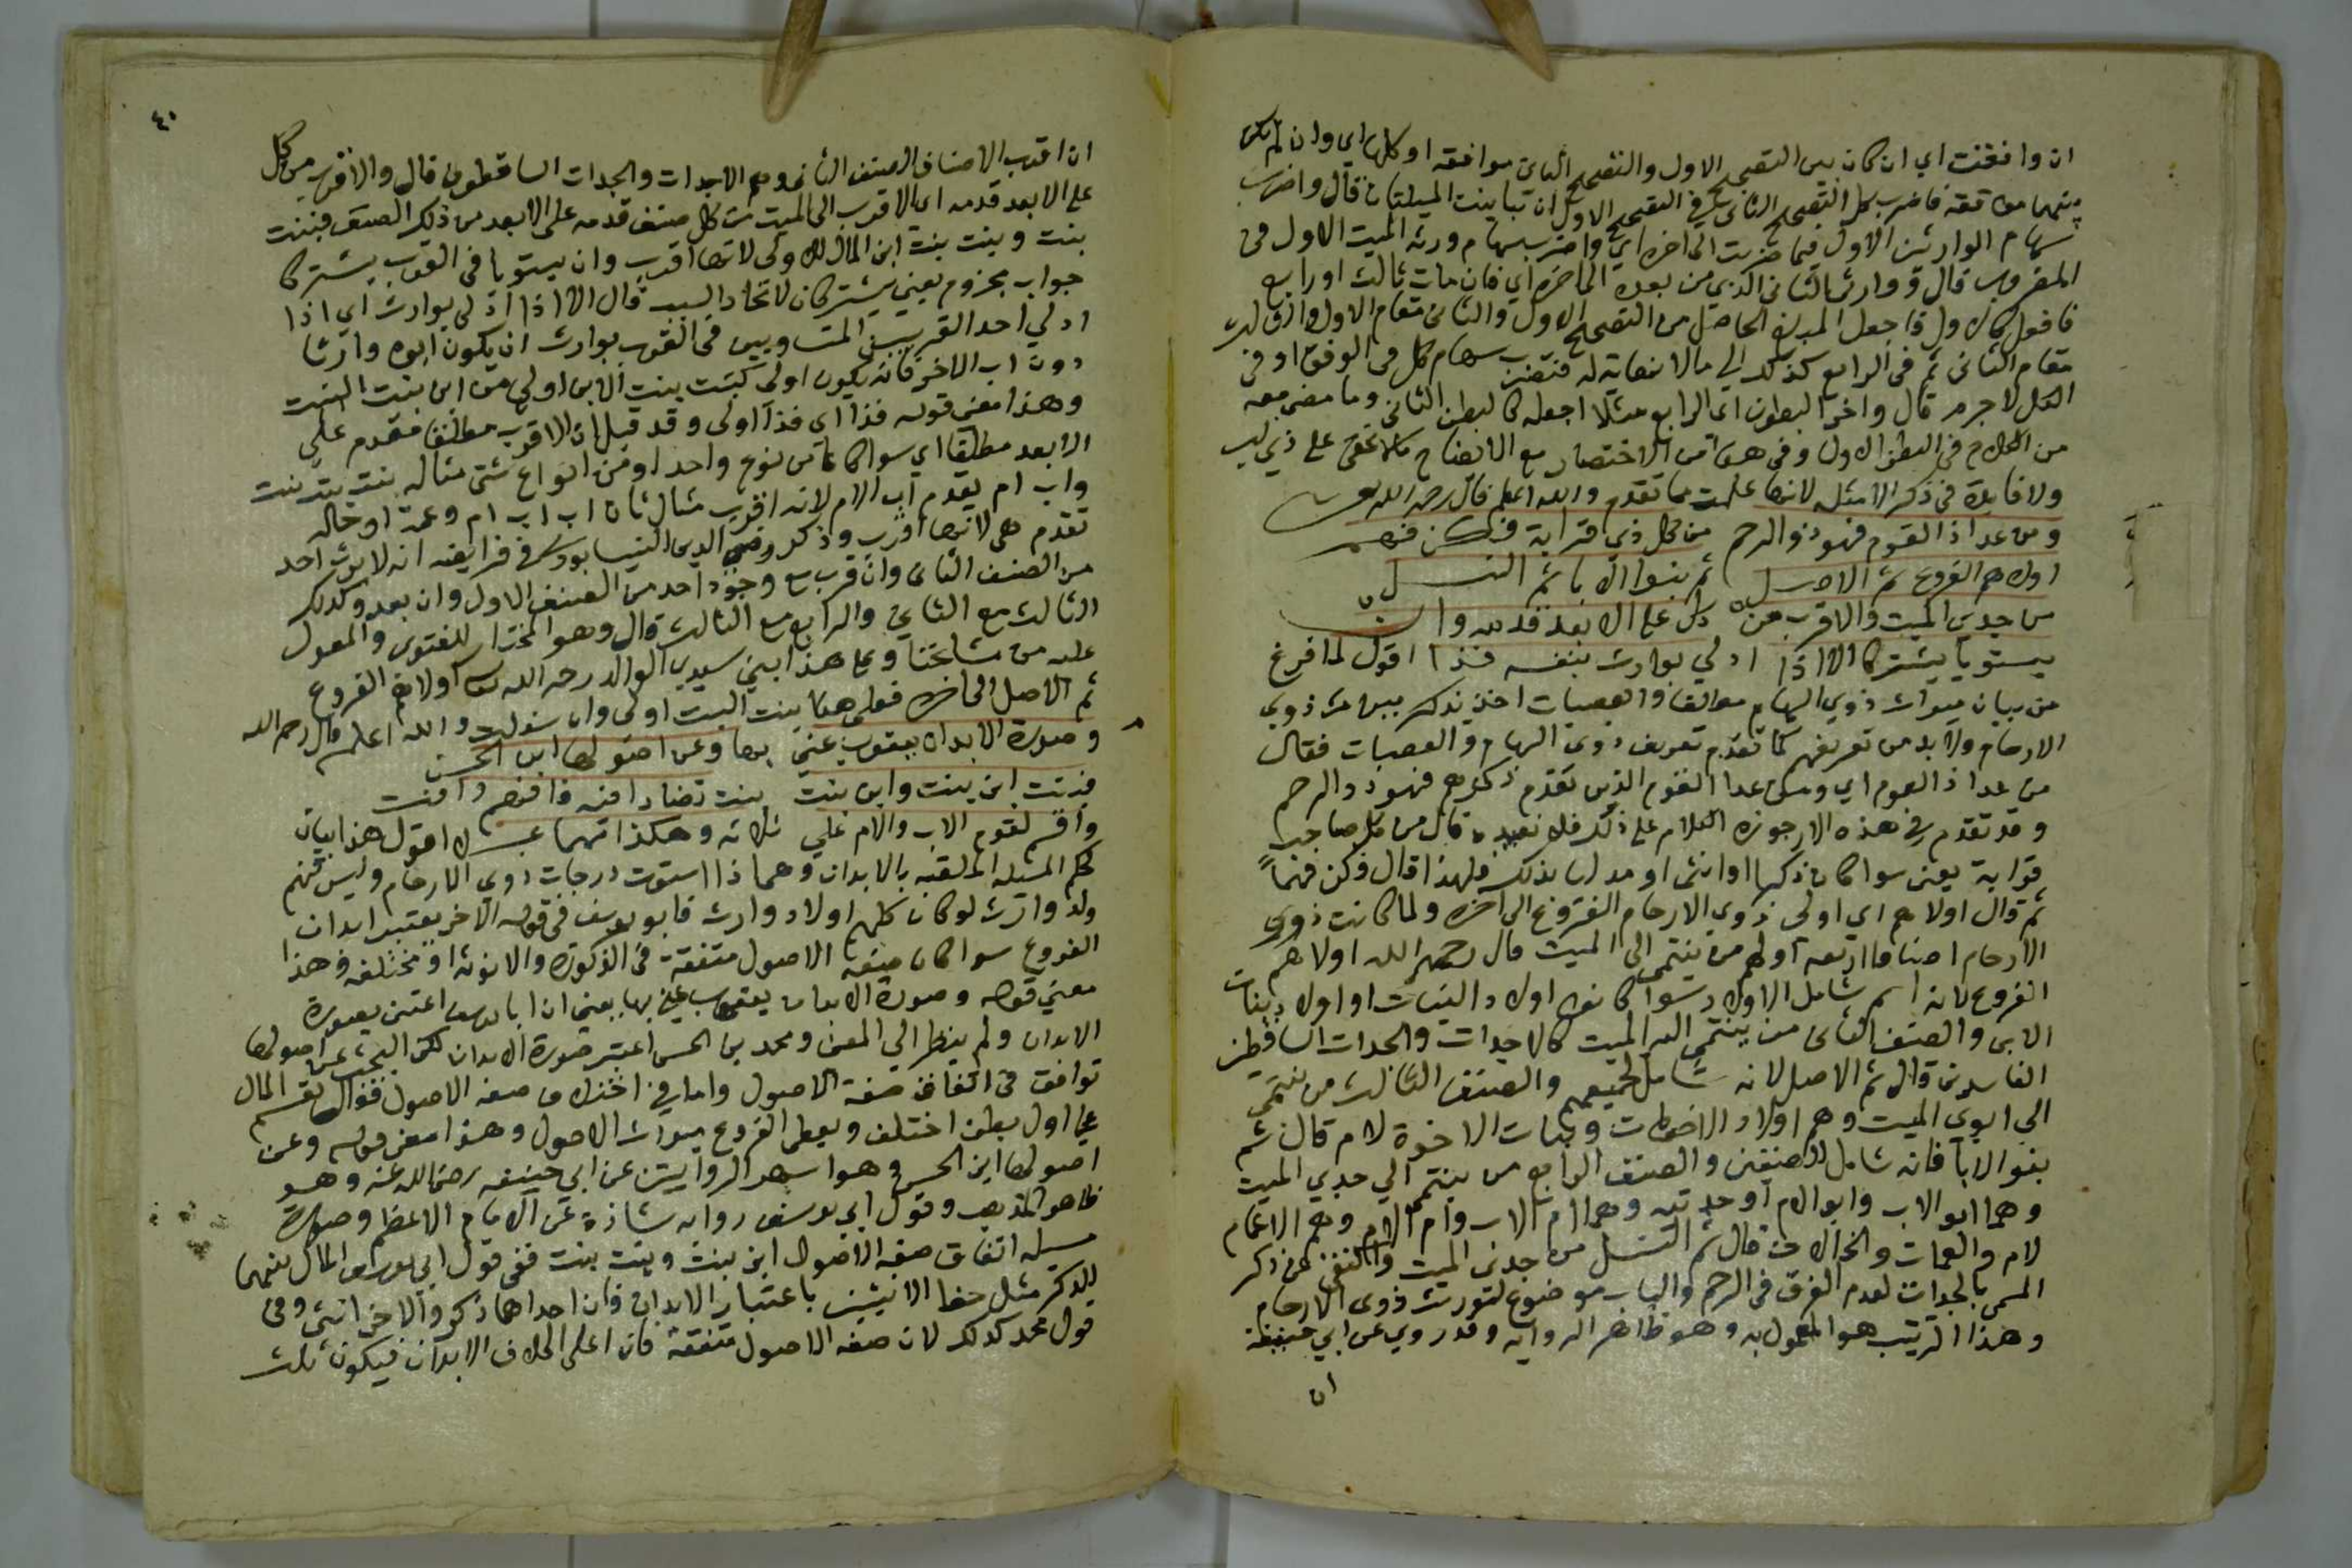 ان وافقت اي ان كان بين التصحيح الاول والتصحيح الثاني موافقة او كلها اي وان لم يكن
بينهما موافقة فاضرب كل التصحيح الثاني في التصحيح الاول ان تباينت المسئلتان قال واضرب
سهام الوارثين الاول فيما ضربت الى اخره اي واضرب سهام ورثة الميت الاول في
المضروب قال ووارث الثاني الذي من بعده الى اخره اي فان مات ثالث او رابع
فاجعل المبلغ الحاصل من التصحيح الاول والثاني مقام الاول والثالث
مقام الثاني ثم في الرابع كذلك الي مالا نهاية له فتضرب سهام كل في الوفق او في
الكل لاجرم قال واخر البطون اي الرابع مثلا اجعله كالبطن الثاني وما مضى معه
من الكلام في البطن الاول وفي من الاختصار مع الايضاح مالا يخفى على ذي لب
ولا فايدة في ذكر الامثلة لانها علمت مما تقدم والله اعلم قال رحمه الله
ومن عدا ذا القوم فهو ذو الرحم من كل ذي قرابة فكن فهم
اولاهم الفروع ثم الاصل ثم بنوا الابا ثم النسل
من جدي الميت والاقرب من كل على الابعد قدمه وان
يستويا يشتركا الا اذا ادلي بوارث بنفسه فذا اقول لما فرغ
من بيان ميراث ذوي السهام والعصبات اخذ يذكر ذوي
الارحام ولا بد من تعريفهم كما تقدم تعريف ذوي السهام والعصبات فقال
من عدا ذا القوم اي ومن عدا القوم الذين تقدم ذكرهم فهو ذو الرحم
وقد تقدم في هذه الارجوزة الكلام على ذلك فلا نعيده قال من كل صاحب
قرابة يعني سوا كان ذكرا او انثى او مدليا بذلك فلهذا قال فكن فهما
ثم قال اولاهم اي اولى ذوي الارحام الفروع الى اخره ولما كانت ذوي
الارحام اصنافا اربعة اولهم من ينتمي الى الميت قال رحمه الله اولاهم
الفروع لانه اسم شامل الاولاد سوا كانوا اولاد البنات او اولاد بنات
الابن والصنف الثاني من ينتمي اليه الميت كالاجداد والجدات الساقطين
الفاسدين قال ثم الاصل لانه شامل لجميعهم والصنف الثالث من ينتمي
الى ابوي الميت وهم اولاد الاخوات وبنات الاخوة لام قال ثم
بنو الابا فانه شامل للصنفين والصنف الرابع من ينتمي الي جدي الميت
وهما ابو الاب وابو الام او جدتيه وهما ام الاب وام الام وهم الاعمام
لام والعمات والخالات قال ثم النسل من جدى الميت واكتفى عن ذكر
المسمى بالجدات لعدم الفرق في الرحم والباب موضوع لتوريث ذوى الارحام
وهذا الترتيب هو المعمول به وهو ظاهر الرواية وقد روي عن ابي حنيفة
ان
٤٠
ان اقرب الاصناف الصنف الثاني وهم الاجداد والجدات الساقطون قال والاقرب من كل
على الابعد قدمه اي الاقرب الى الميت من كل صنف قدمه على الابعد من ذلك الصنف فبنت
بنت وبنت بنت ابن المال للاولى لانها اقرب وان يستويا في القرب يشتركا
جواب مجزوم يعني يشتركان لاتحاد السبب قال الا اذا ادلي بوارث اي اذا
ادلي احد القريبين المتساويين في القرب بوارث ان يكون ابوه وارثا
دون اب الاخر فانه يكون اولى كبنت بنت الابن اولى من ابن بنت البنت
وهذا معنى قوله فذا اي فذا اولى وقد قيل ان الاقرب مطلقا مقدم على
الابعد مطلقا اي سوا كانا من نوع واحد او من انواع شتى مثاله بنت بنت بنت
واب ام يقدم اب الام لانه اقرب مثال ثان اب اب ام وعمة او خالة
تقدم هي لانها اقرب وذكر رضي الدين النيسابوري في فرايضه انه لا يرث احد
من الصنف الثاني وان قرب مع وجود احد من الصنف الاول وان بعد وكذلك
الثالث مع الثاني والرابع مع الثالث قال وهو المختار للفتوى والمعول
عليه من مشائخنا وعلى هذا بين سيدي الوالد رحمه الله اولاهم الفروع
ثم الاصل الى اخره فعلى هذا بنت البنت اولى وان سفلت والله اعلم قال رحمه الله
وصورة الابدان يعقوب عني بها وعن اصولها ابن الحسن
فبنت ابن بنت وابن بنت بنت
واقسم لقوم الاب والام على ثلاثة وهكذا اقول هذا بيان
حكم المسئلة الملقبة بالابدان وهما اذا استوت درجات ذوي الارحام وليس فيهم
ولد وارث او كان كلهم اولاد وارث فابو يوسف في قوله الاخر يعتبر ابدان
الفروع سوا كان صفة الاصول متفقة في الذكورة والانوثة او مختلفة وهذا
معني قوله وصورة الابدان يعقوب عني بها يعني ان ابا يوسف اعتنى بصورة
الابدان ولم ينظر الي المعنى ومحمد بن الحسن اعتبر صورة الابدان لكن البحث عن اصولها
توافق في اتفاق صفة الاصول واما في اختلاف صفة الاصول فقال يقسم المال
على اول بطن اختلف ويعطى الفروع ميراث الاصول وهذا معنى قوله وعن
اصولها ابن الحسن وهو اشهر الروايتين عن ابي حنيفة رضي الله عنه وهو
ظاهر المذهب وقول ابي يوسف رواية شاذة عن الامام الاعظم وصورة
مسيلة اتفاق صفة الاصول ابن بنت وبنت بنت ففي قول ابي يوسف المال بينهما
للذكر مثل حظ الانثيين باعتبار الابدان فان احداهما ذكر والاخر انثى وفي
قول محمد كذلك لان صفة الاصول متفقة الابدان فيكون ثلث